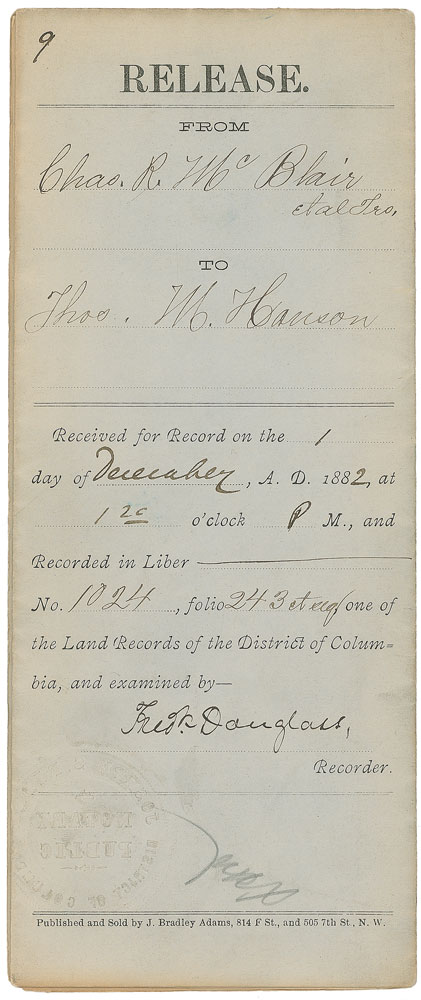 9
RELEASE.
FROM
Chas. R. Mc Blair
et al Trs.
TO
Thos. M. Hanson
Received for Record on the 1
day of December, A. D. 1882, at
1 20 o'clock P M., and
Recorded in Liber
No. 1024, folio 243 et seq one of
the Land Records of the District of Colum=
bia, and examined by—
Fredk Douglass,
Recorder.
NOTARY
PUBLIC
Published and Sold by J. Bradley Adams, 814 F St., and 505 7th St., N. W.